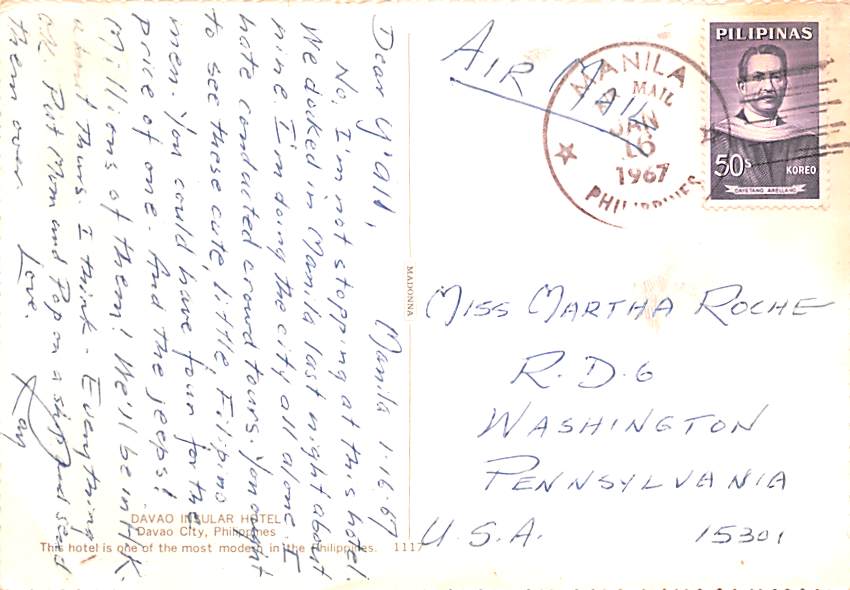 Manila 1-16-67
Dear Y'all,
No, I'm not stopping at this hotel.
We docked in Manila last night about
nine. I'm doing the city all alone. I
hate conducted crowd tours. You ought
to see these cute, little, Filipino
men. You could have four for the
price of one. And the jeeps!
Millions of them! We'll be in H.K.
about Thurs. I think - Everything
O.K. Put Mom and Pop on a ship and send
them over.
Love,
Kay
DAVAO INSULAR HOTEL
Davao City, Philippines
This hotel is one of the most modern in the Philippines. 1117
MADONNA
AIR MAIL
MANILA
MAIL
JAN
16
1967
PHILIPPINES
PILIPINAS
50s
KOREO
CAYETANO ARELLANO
MISS MARTHA ROCHE
R.D.6
WASHINGTON
PENNSYLVANIA
U.S.A. 15301